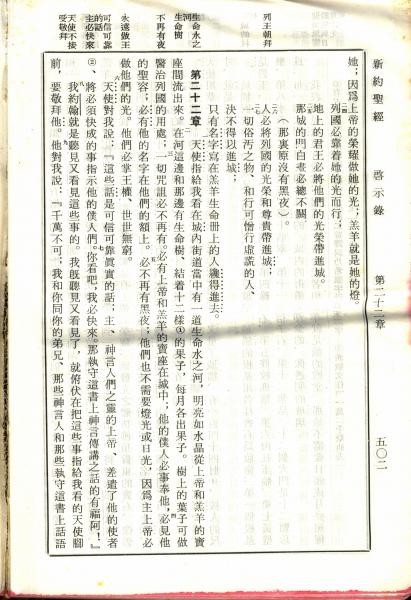 新約聖經 啓示錄 第二十二章 五〇二
列王朝拜
生命水之河
生命樹
不再有夜
永遠做王
可信可靠的話
主必快來
天使不接受敬拜
她；因爲上帝的榮耀做她的光；羔羊就是她的燈。
列國必靠着她的光而行；
地上的君王必將他們的光榮帶進城。
那城的門白晝必總不關，
（那裏原沒有黑夜）。
人必將列國的光榮和尊貴帶進城；
一切俗污之物、和行可憎行虛謊的人、
決不得以進城；
只有名字寫在羔羊生命冊上的人纔得進去。
第二十二章 天使指給我看在城內街道當中有一道生命水之河，明亮如水晶從上帝和羔羊的寶
座間流出來。在河這邊和那邊有生命樹、結着十二樣①的果子，每月各出果子。樹上的葉子可做
醫治列國的用處；一切咒詛必不再有。必有上帝和羔羊的寶座在城中；他的僕人必事奉他，必見他
的聖容；必有他的名字在他們的額上。必不再有黑夜；他們也不需要燈光或日光、因爲主上帝必
做他們的光。他們必掌王權、世世無窮。
天使對我說：『這些話是可信可靠眞實的話；主、神言人們之靈的上帝、差遣了他的使者
②、將必須快成的事指示他的僕人們。你看吧，我必快來。那執守這書上神言傳講之話的有福阿！』
我約翰就是聽見又看見這些事的。我旣聽見又看見了，就俯伏在把這些事指給我看的天使腳
前，要敬拜他。他對我說：『千萬不可；我和你同你的弟兄、那些神言人和那些執守這書上話語